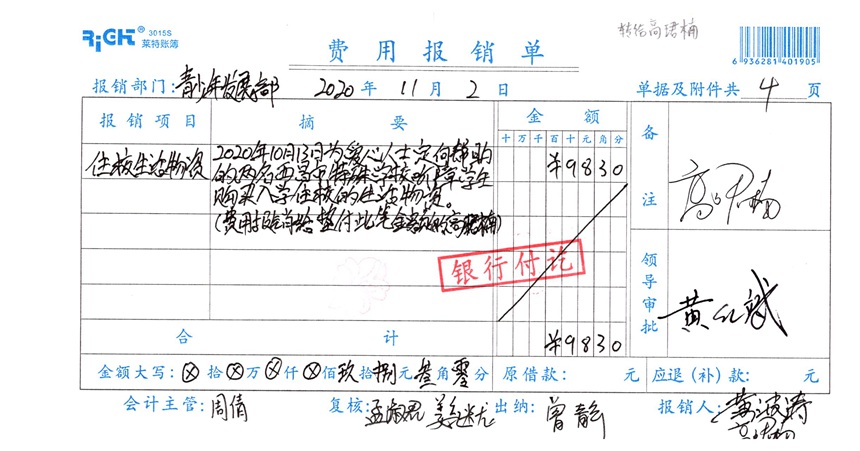 RiGHT 3015S
莱特账簿
转给高珺楠
费用报销单
6 936281 401905
报销部门:青少年发展部 2020年11月2日 单据及附件共4页
报销项目 摘要 金额 备注
十万千百十元角分
住校生活物资 2020年10月13日为爱心人士定向帮购 ¥9830
的两名西宁市特殊学校听障学生
购买入学住校的生活物资。
(费用报销前给垫付此笔金额的高珺楠)
银行付讫
领导审批
合计 ¥9830
金额大写:⊗拾⊗万⊗仟⊗佰玖拾捌元叁角零分 原借款: 元 应退(补)款: 元
会计主管:周倩 复核:孟淑君 出纳:曾 报销人:黄波涛